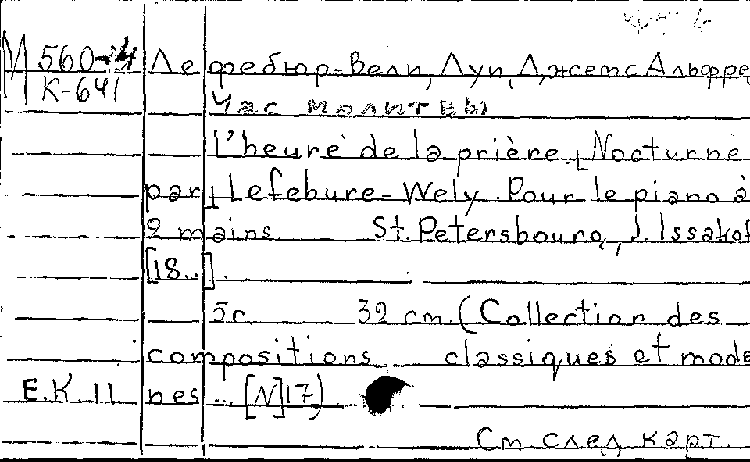 М 560-4 Лефебюр-Вели, Луи, Джемс Альфре
К-641 Час молитвы
L'heure de la prière. Nocturne
par Lefebure-Wely Pour le piano à
2 mains St. Petersbourg, J. Issakof
[18..].
5с. 32 cm (Collection des
compositions classiques et mode
Е.К 11 nes.. [N]17)
См. след карт.